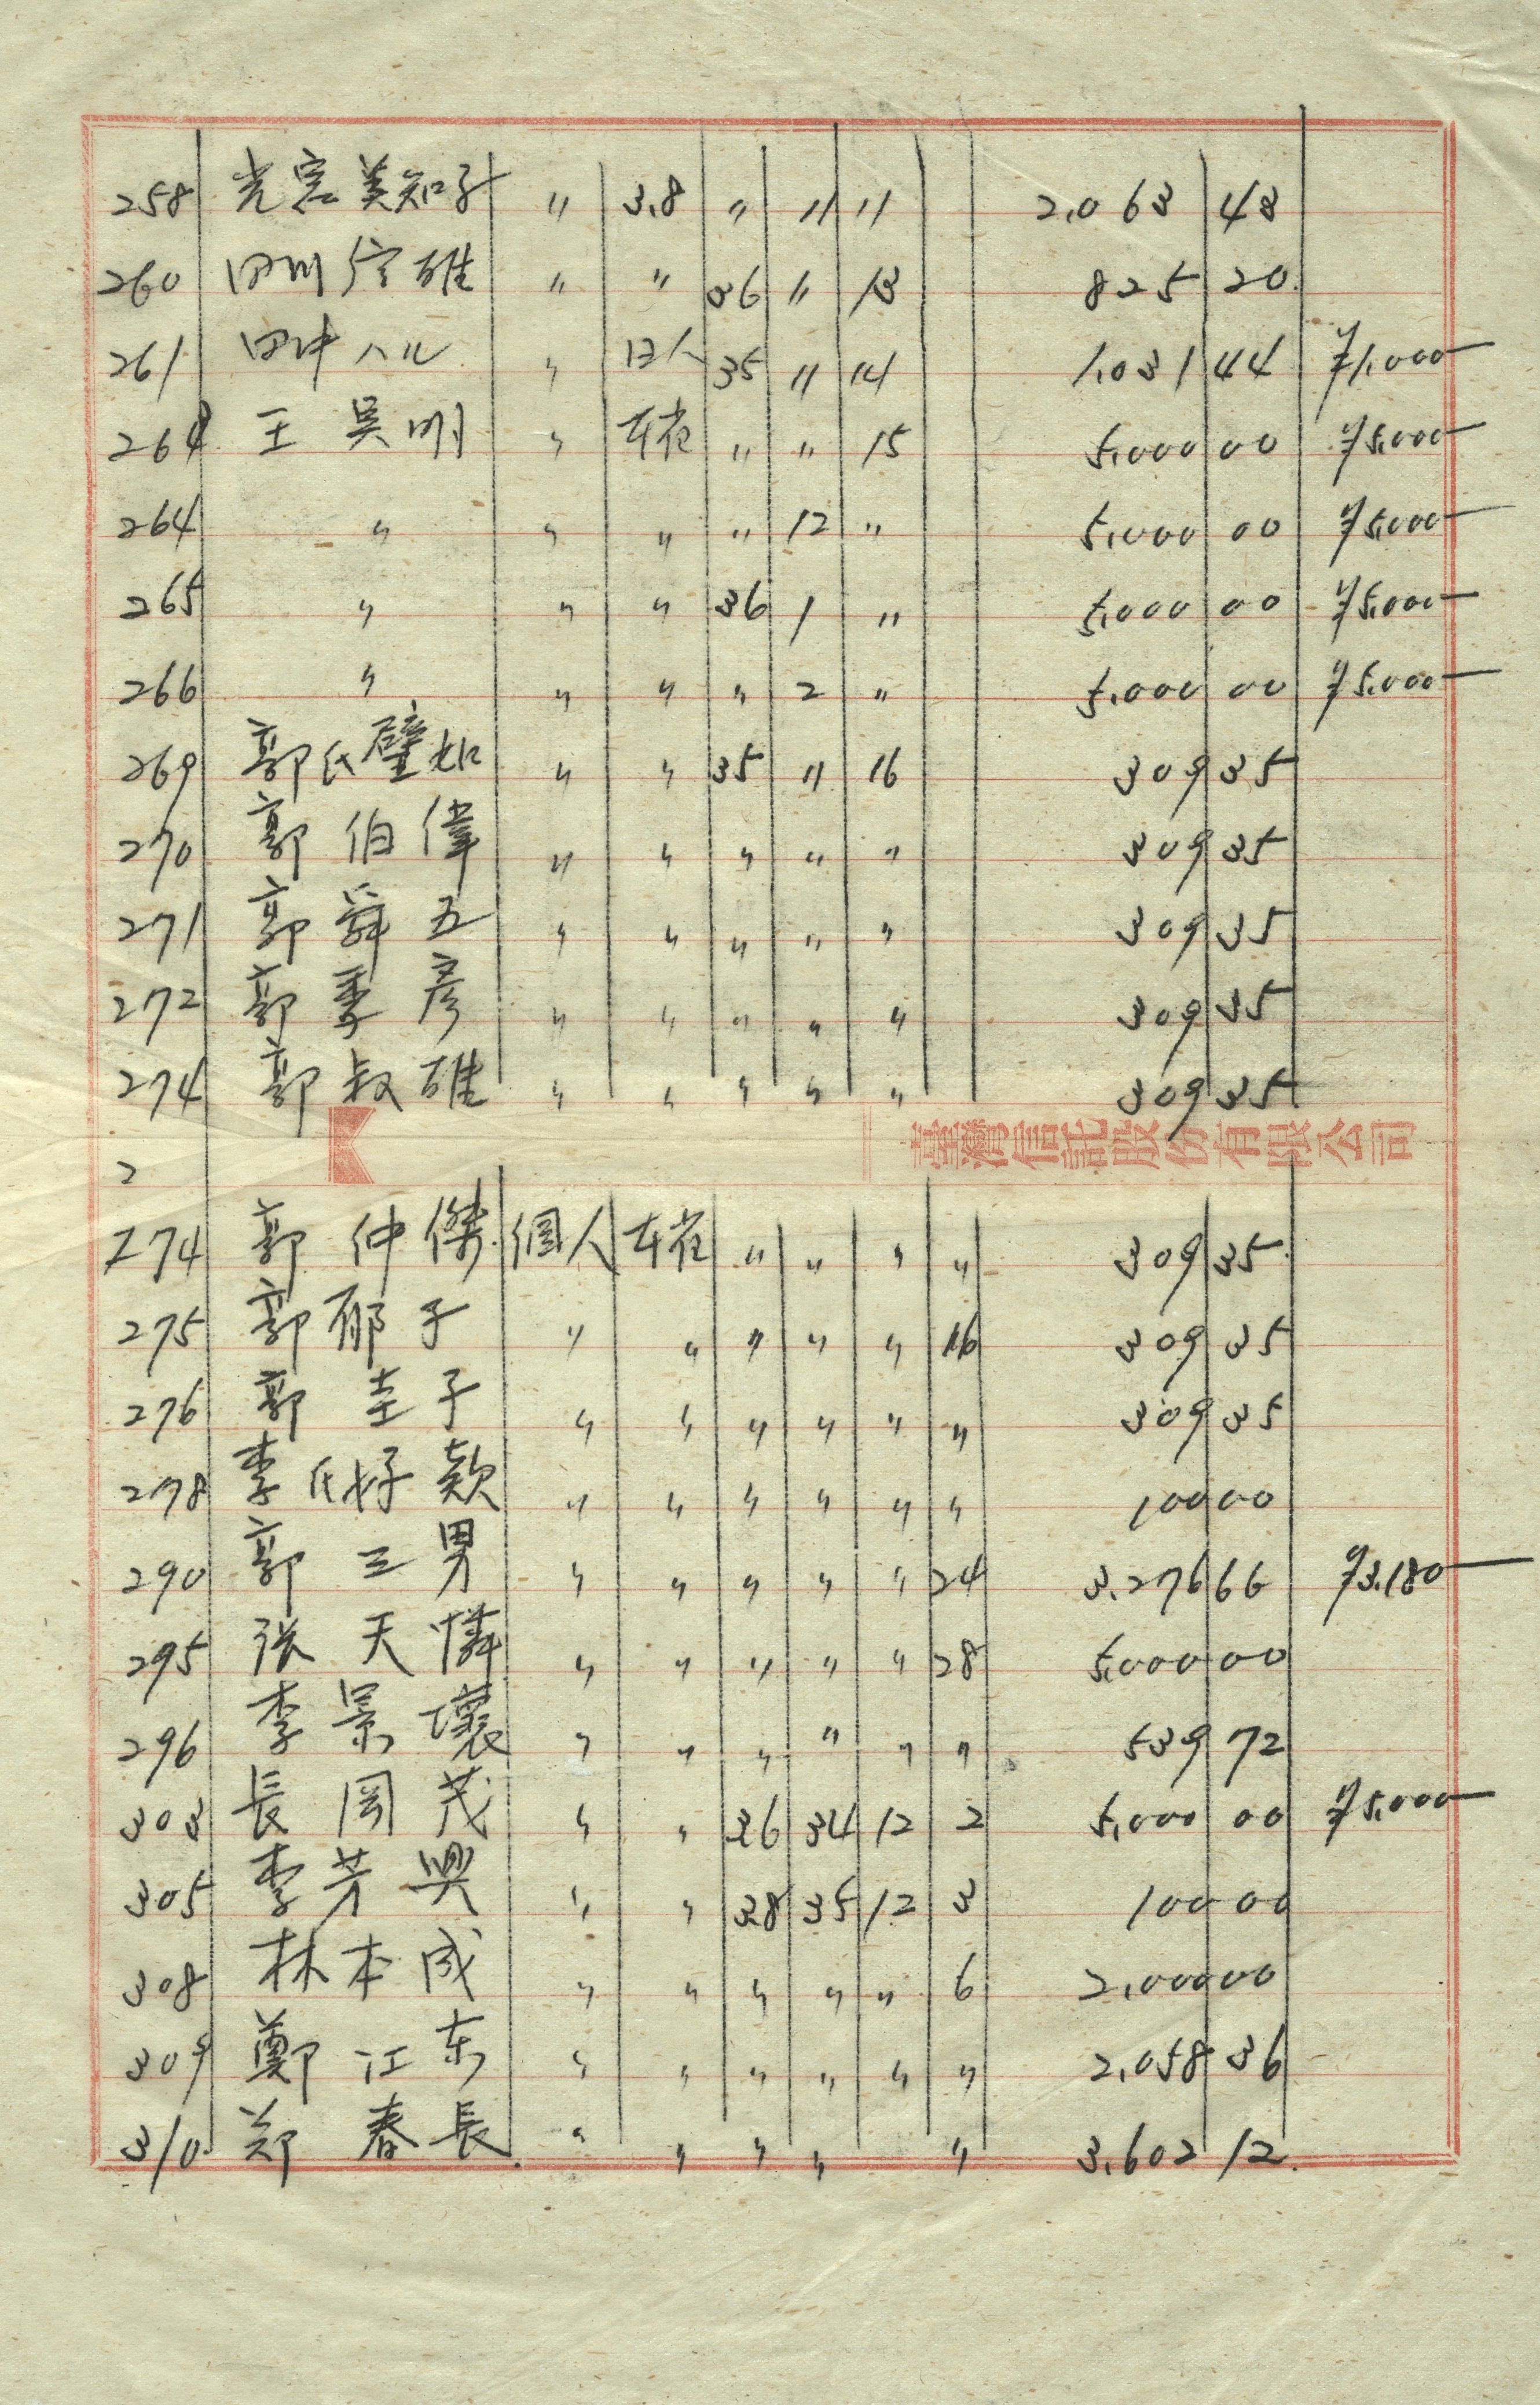 258 光宮美知子 〃 3.8 〃 11 11 2,063 43
260 田川信雄 〃 〃 36 11 13 825 20
261 田中ハル 〃 日人 35 11 14 1,031 44 ¥1,000
264 王吳明 〃 本省 〃 〃 15 5,000 00 ¥5,000
264 〃 〃 〃 〃 12 〃 5,000 00 ¥5,000
265 〃 〃 〃 36 1 〃 5,000 00 ¥5,000
266 〃 〃 〃 〃 2 〃 5,000 00 ¥5,000
269 郭氏璧如 〃 〃 35 11 16 309 35
270 郭伯偉 〃 〃 〃 〃 〃 309 35
271 郭舜五 〃 〃 〃 〃 〃 309 35
272 郭季彥 〃 〃 〃 〃 〃 309 35
274 郭叔雄 〃 〃 〃 〃 〃 309 35
臺灣信託股份有限公司
2
274 郭仲傑 個人 本省 〃 〃 〃 〃 309 35
275 郭郁子 〃 〃 〃 〃 〃 16 309 35
276 郭圭子 〃 〃 〃 〃 〃 〃 309 35
278 李氏好款 〃 〃 〃 〃 〃 〃 100 00
290 郭三男 〃 〃 〃 〃 〃 24 3,276 66 ¥3,180
295 張天憐 〃 〃 〃 〃 〃 28 5,000 00
296 李景壤 〃 〃 〃 〃 〃 〃 539 72
303 長岡茂 〃 〃 36 34 12 2 5,000 00 ¥5,000
305 李芳興 〃 〃 38 35 12 3 100 00
308 林本成 〃 〃 〃 〃 〃 6 2,000 00
309 鄭江东 〃 〃 〃 〃 〃 〃 2,058 36
310 郑春長 〃 〃 〃 〃 〃 3,602 12